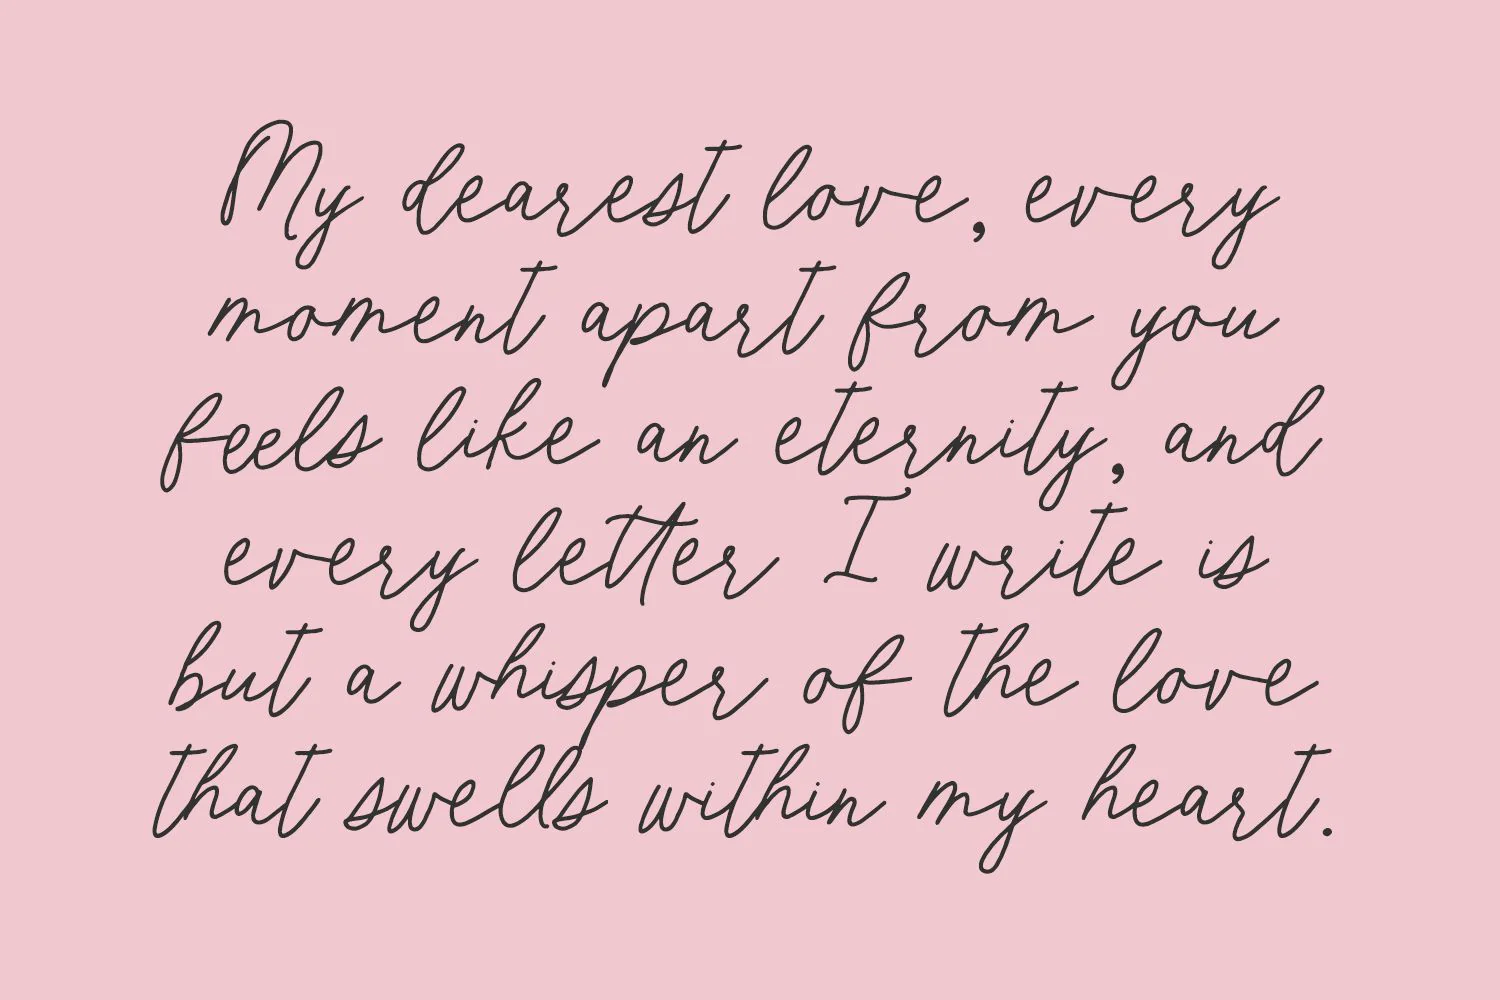 My dearest love, every
moment apart from you
feels like an eternity, and
every letter I write is
but a whisper of the love
that swells within my heart.